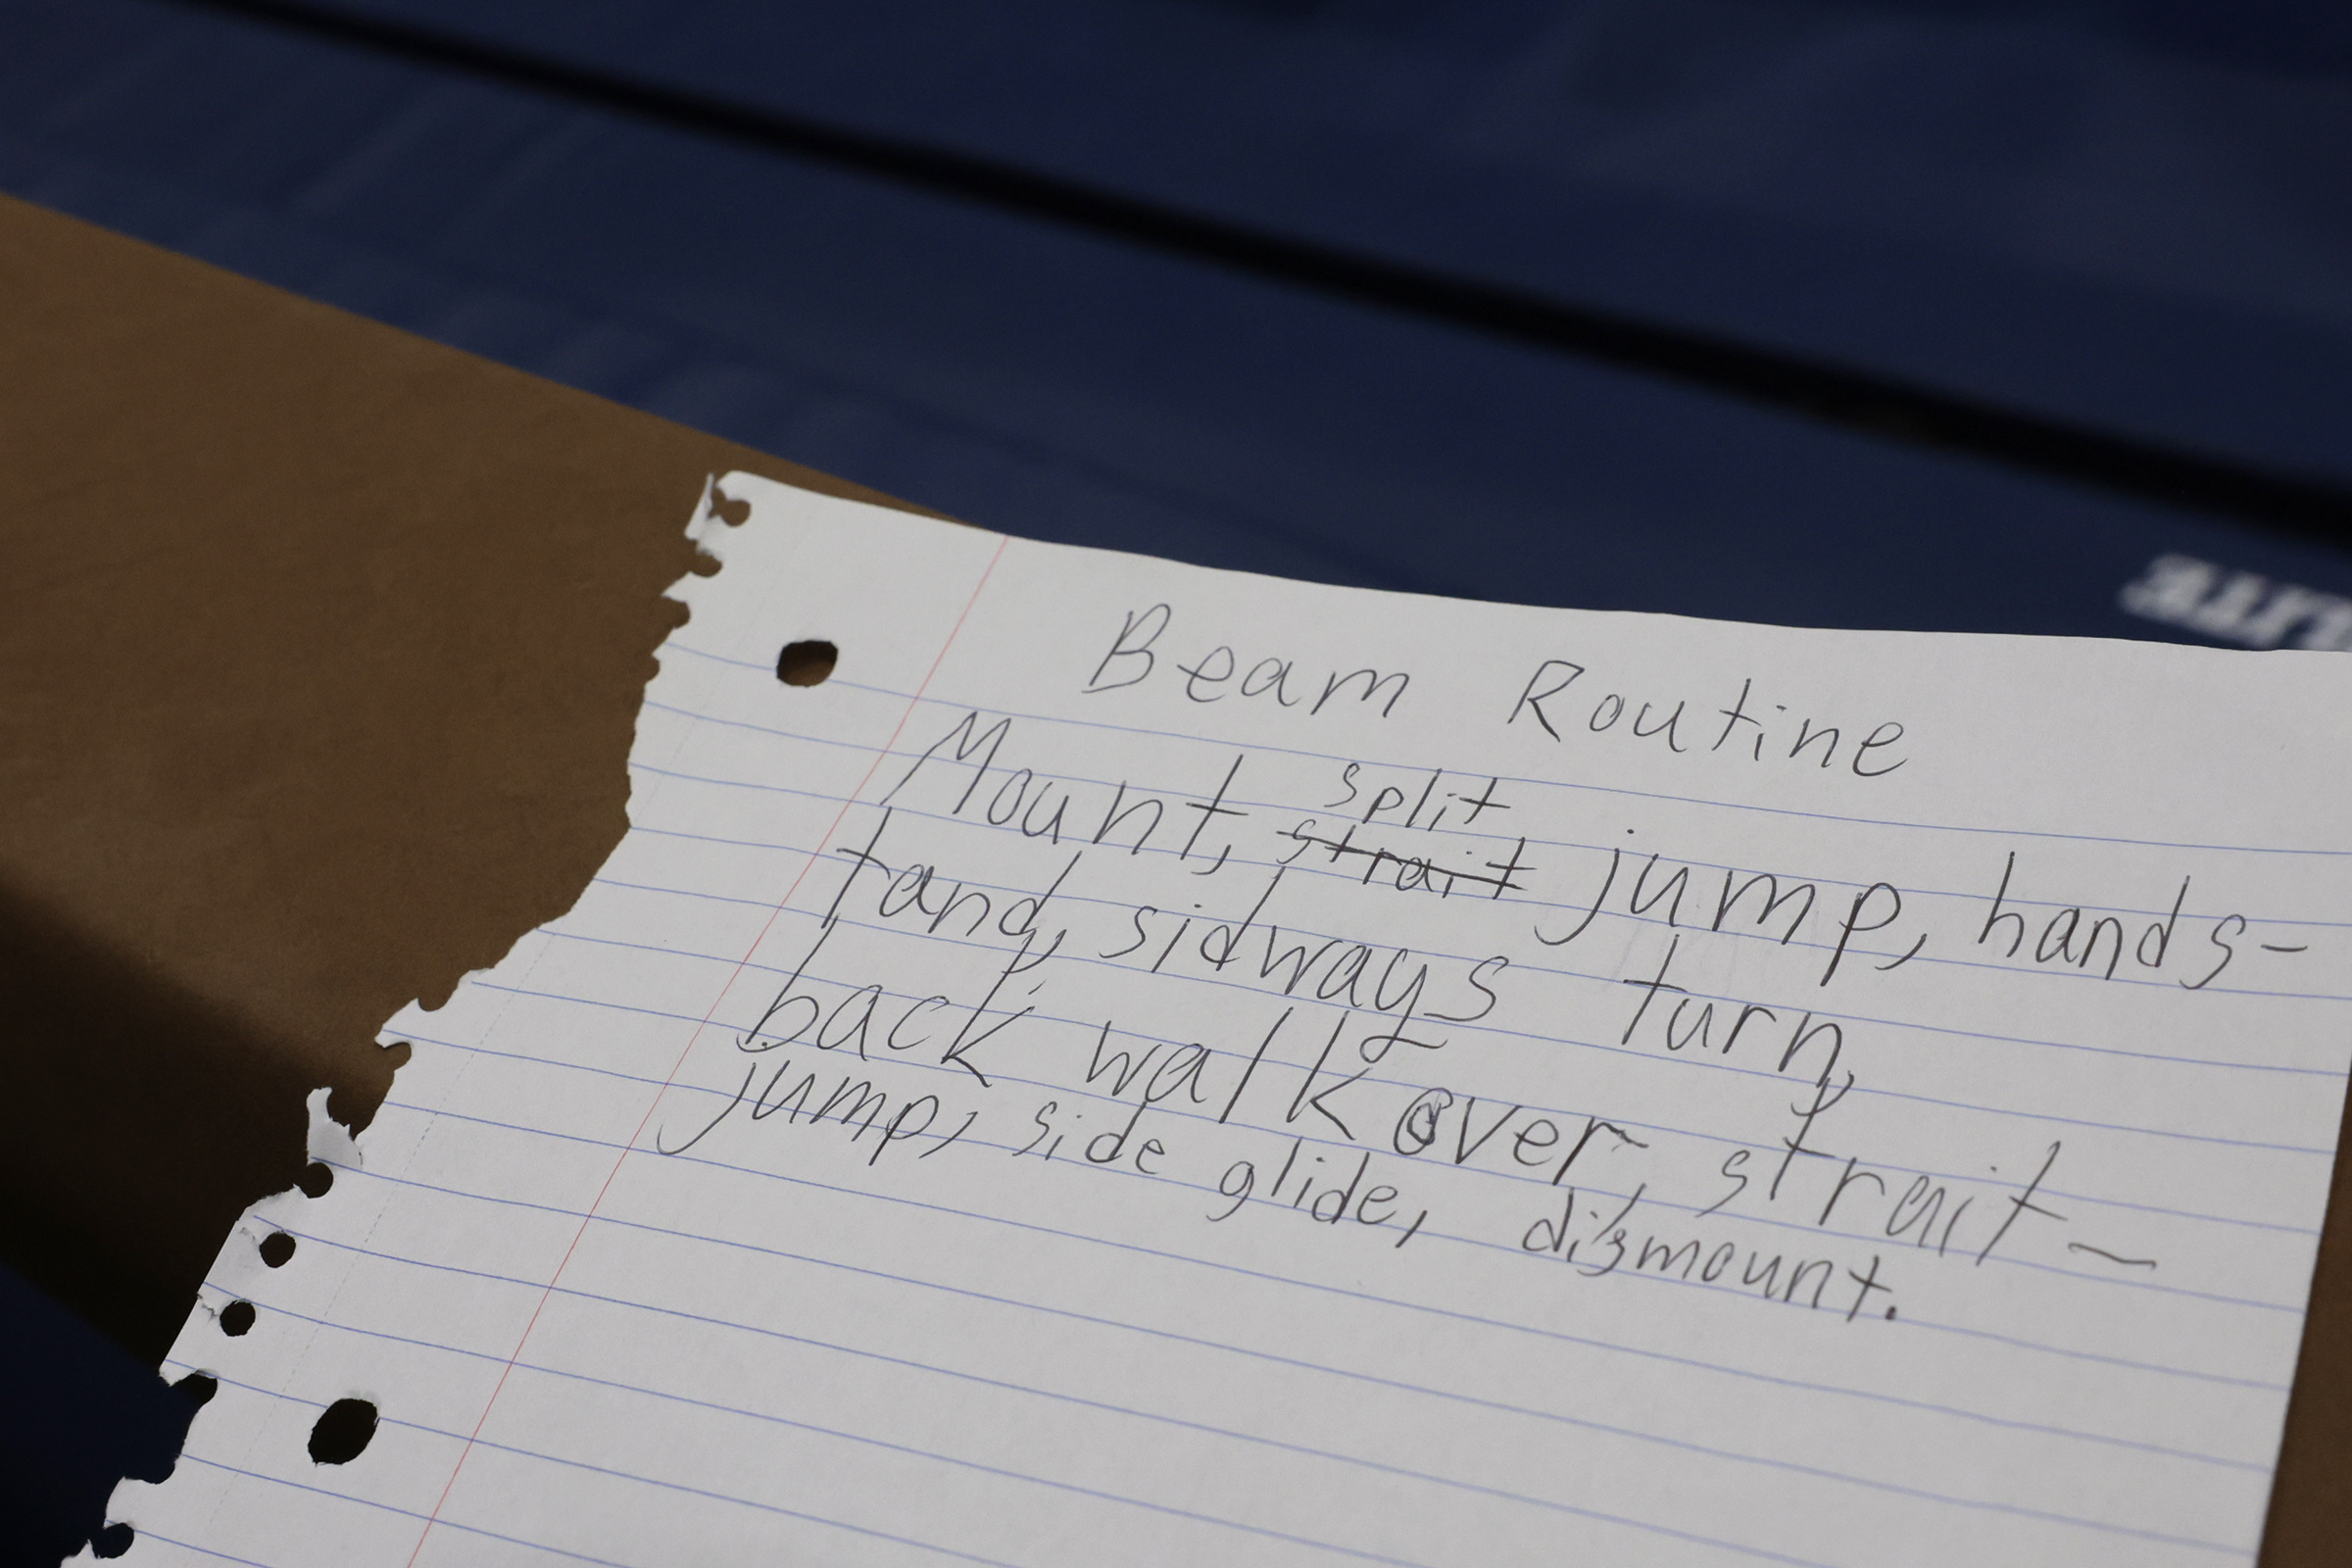 Beam Routine
split
Mount, ~~strait~~ jump, hands-
tand, sidways turn,
back walkover, strait-
jump, side glide, dismount.